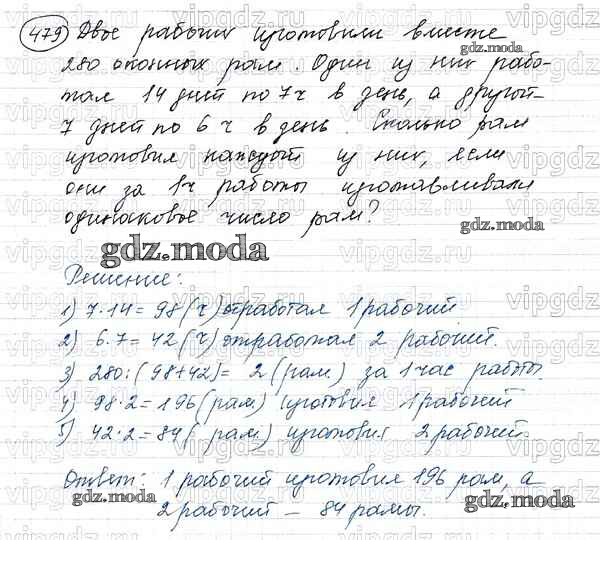 479 Двое рабочих изготовили вместе
280 оконных рам. Один из них рабо-
тал 14 дней по 7ч в день, а другой -
7 дней по 6 ч в день. Сколько рам
изготовил каждый из них, если
они за 1ч работы изготавливали
одинаковое число рам?
gdz.moda
Решение:
1) 7·14 = 98 (ч) отработал 1 рабочий
2) 6·7 = 42 (ч) отработал 2 рабочий.
3) 280:(98+42) = 2 (рам) за 1 час работы.
4) 98·2 = 196 (рам) изготовил 1 рабочий
5) 42·2 = 84 ( рам) изготовил 2 рабочий.
Ответ: 1 рабочий изготовил 196 рам, а
2 рабочий - 84 рамы.